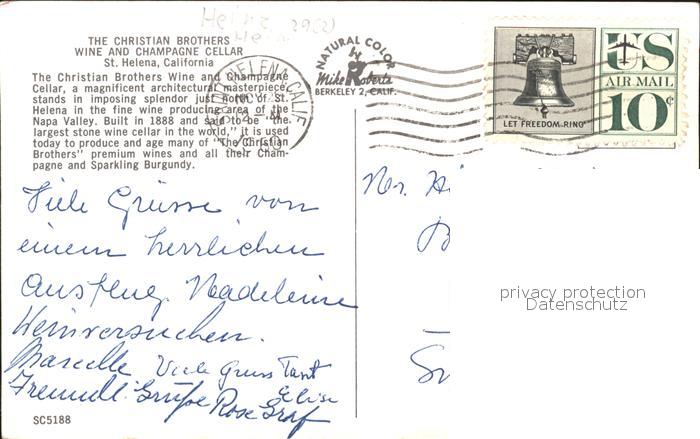 Heinz
THE CHRISTIAN BROTHERS
WINE AND CHAMPAGNE CELLAR
St. Helena, California
The Christian Brothers Wine and Champagne
Cellar, a magnificent architectural masterpiece,
stands in imposing splendor just north of St.
Helena in the fine wine producing area of the
Napa Valley. Built in 1888 and said to be "the
largest stone wine cellar in the world," it is used
today to produce and age many of "The Christian
Brothers" premium wines and all their Cham-
pagne and Sparkling Burgundy.
HELENA, CALIF.
NATURAL COLOR
Mike Roberts
BERKELEY 2, CALIF.
LET FREEDOM RING
US
AIR MAIL
10¢
Viele Grüsse von
einem herrlichen
Ausflug. Madeleine
Weinversuchen.
Marcelle Viele Gruss Tant
Freundl. Grüße Rose Graf Elise
Mr. Hi
privacy protection
Datenschutz
SC5188